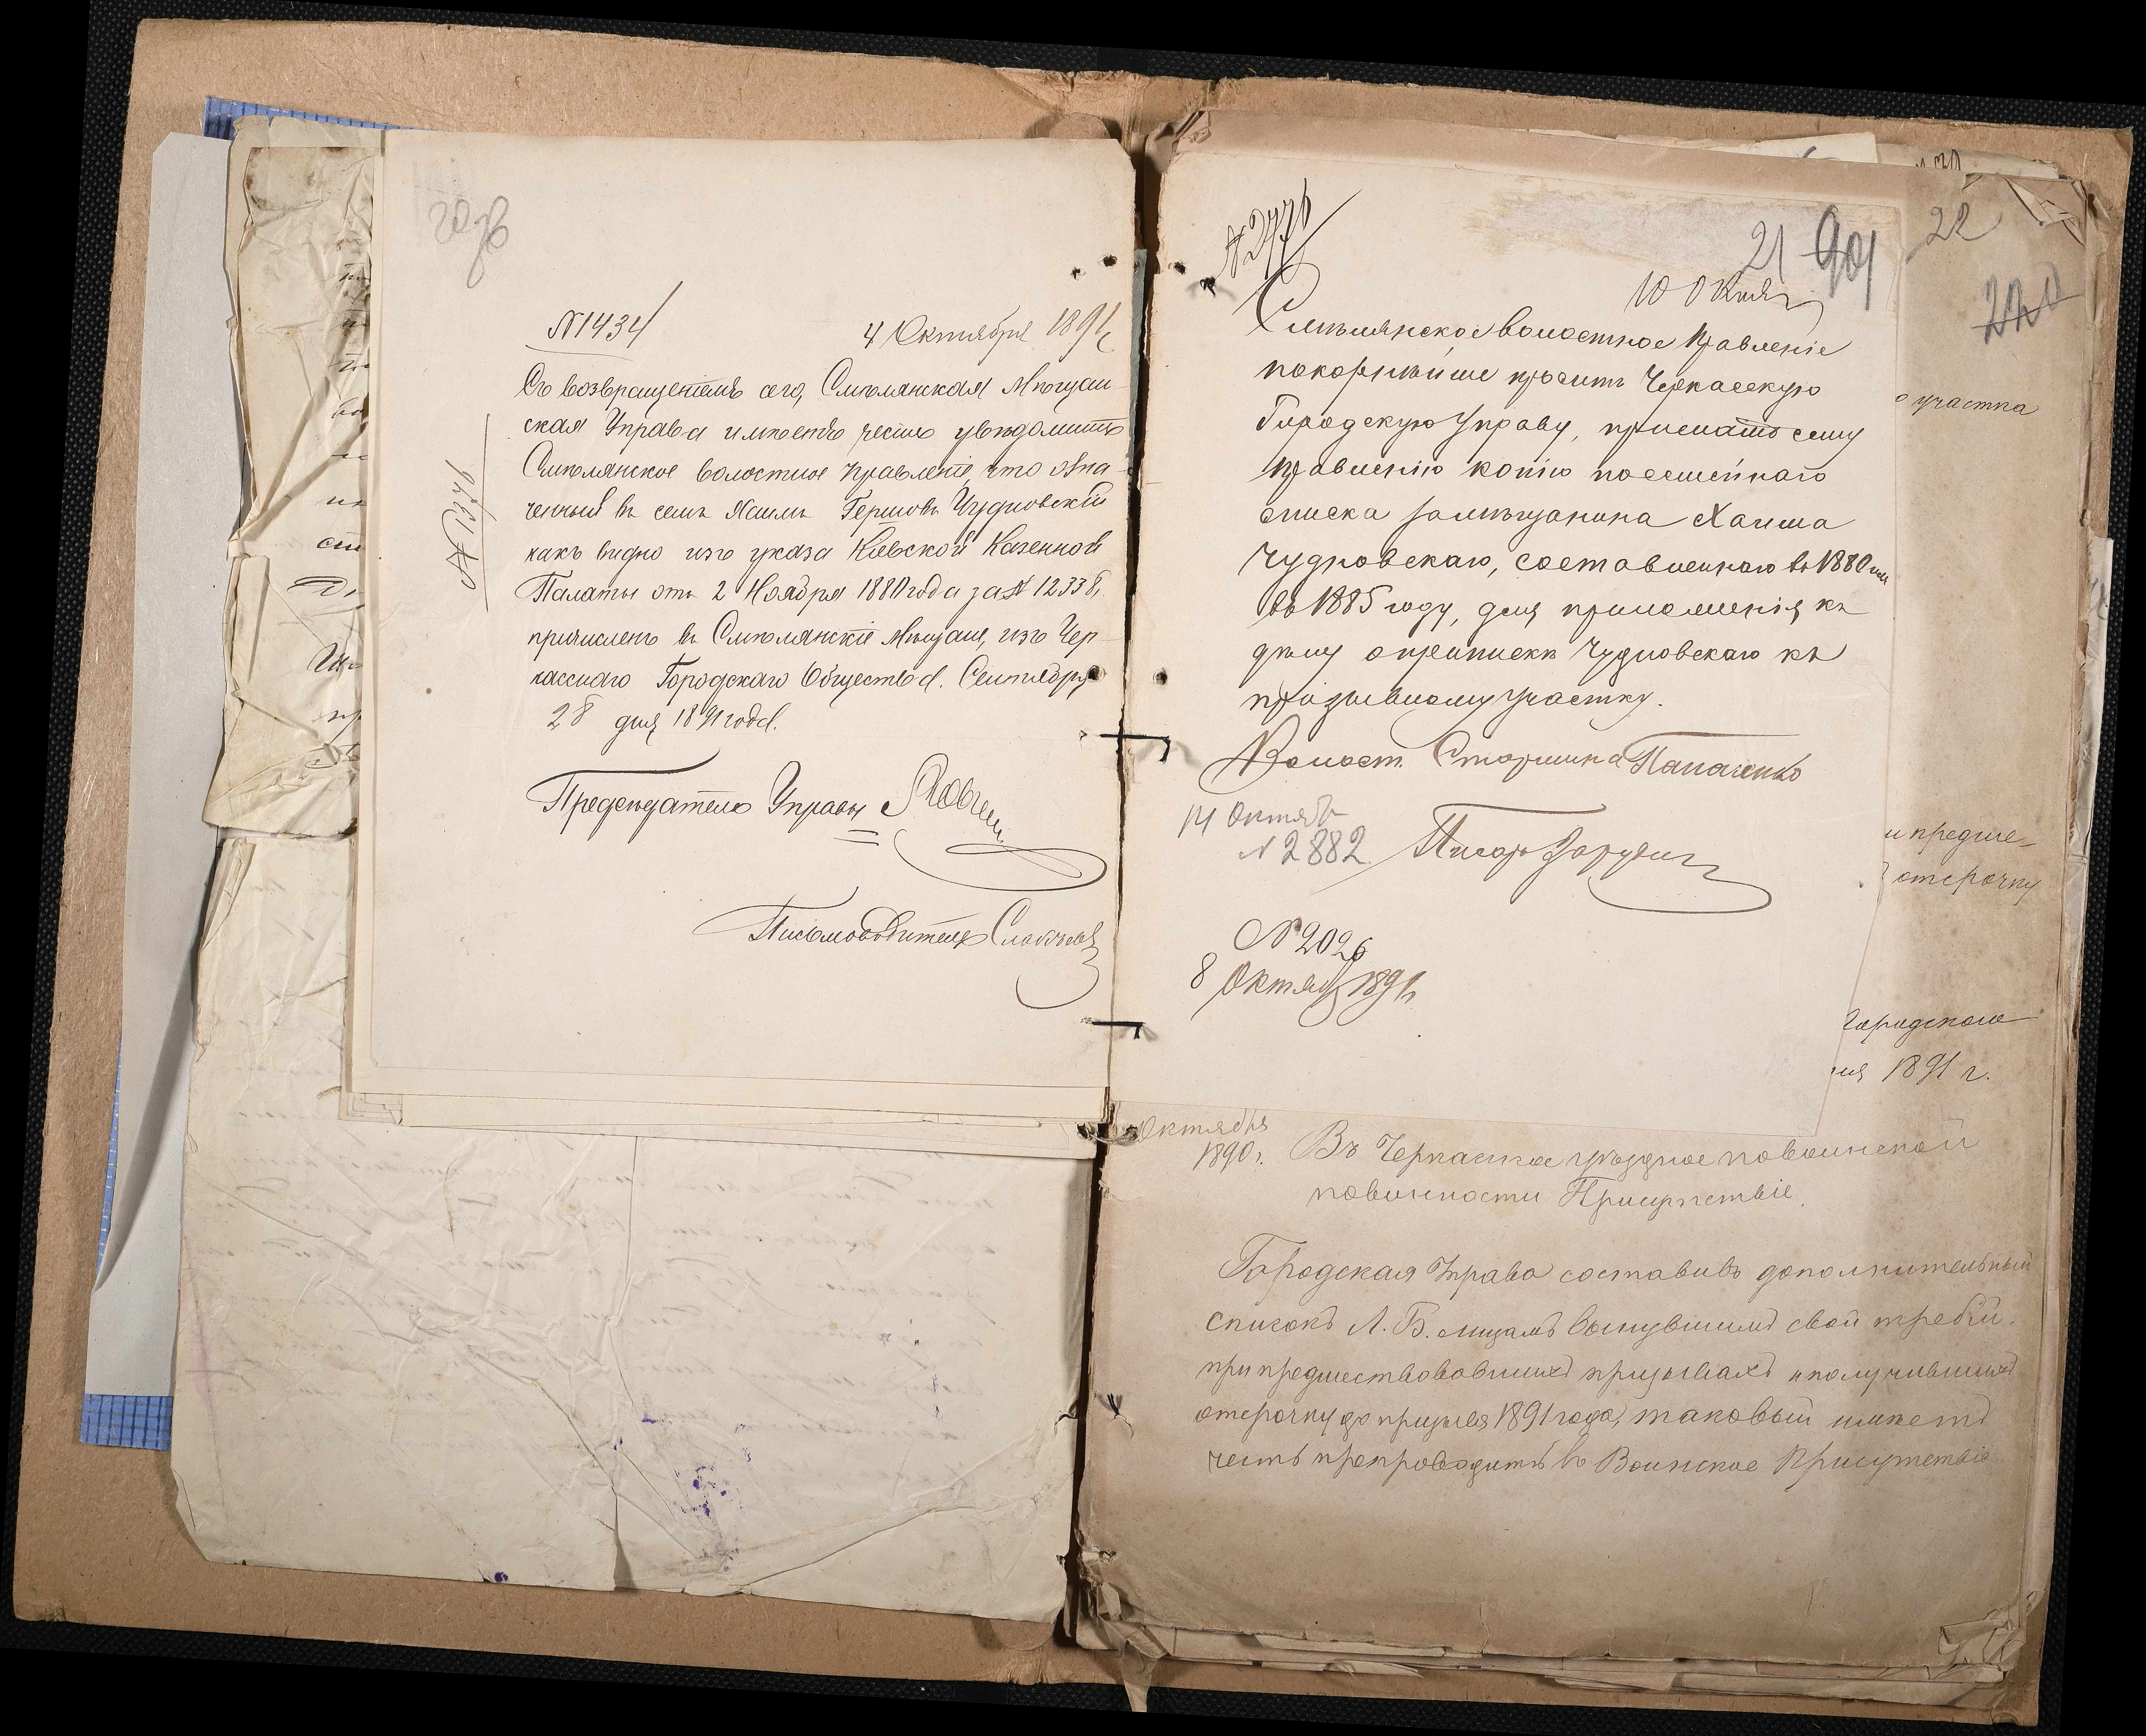 № 1434
4 Октября 1891 г.
Съ возвращеніемъ сего, Смѣлянская Мѣщан-
ская Управа имѣетъ честь увѣдомить
Смѣлянское волостное Правленіе, что озна-
ченный въ семъ Хаимъ Гершовъ Чудновскій
какъ видно изъ указа Кіевской Казенной
Палаты отъ 2 Ноября 1880 года за № 12338,
причисленъ въ Смѣлянскіе Мѣщане, изъ Чер-
касскаго Городскаго Общества. Сентября
28 дня 1891 года.
Предсѣдатель Управы
Письмоводитель
№ 2776
21
10 Октя
Смѣлянское волостное Правленіе
покорнѣйше проситъ Черкасскую
Городскую Управу, прислать сему
Правленію копію посемейнаго
списка за мѣщанина Хаима
Чудновскаго, составленнаго въ 1880 или
въ 1885 году, для приложенія къ
дѣлу о припискѣ Чудновскаго къ
призывному участку.
Волост. Старшина
14 Октяб
№ 2882
Писарь
№ 2026
8 Октяб 1891 г.
22
220
о участка
и предше-
отсрочку
Городского
ия 1891 г.
Октября
1890 г.
Въ Черкасское уѣздное по воинской
повинности Присутствіе.
Городская Управа составивъ дополнительный
списокъ А. Б. лицамъ вынувшимъ свой требій
при предшествовавшихъ призывахъ и получившихъ
отсрочку до призыва 1891 года, таковый имѣетъ
честь препроводить въ Воинское Присутствіе